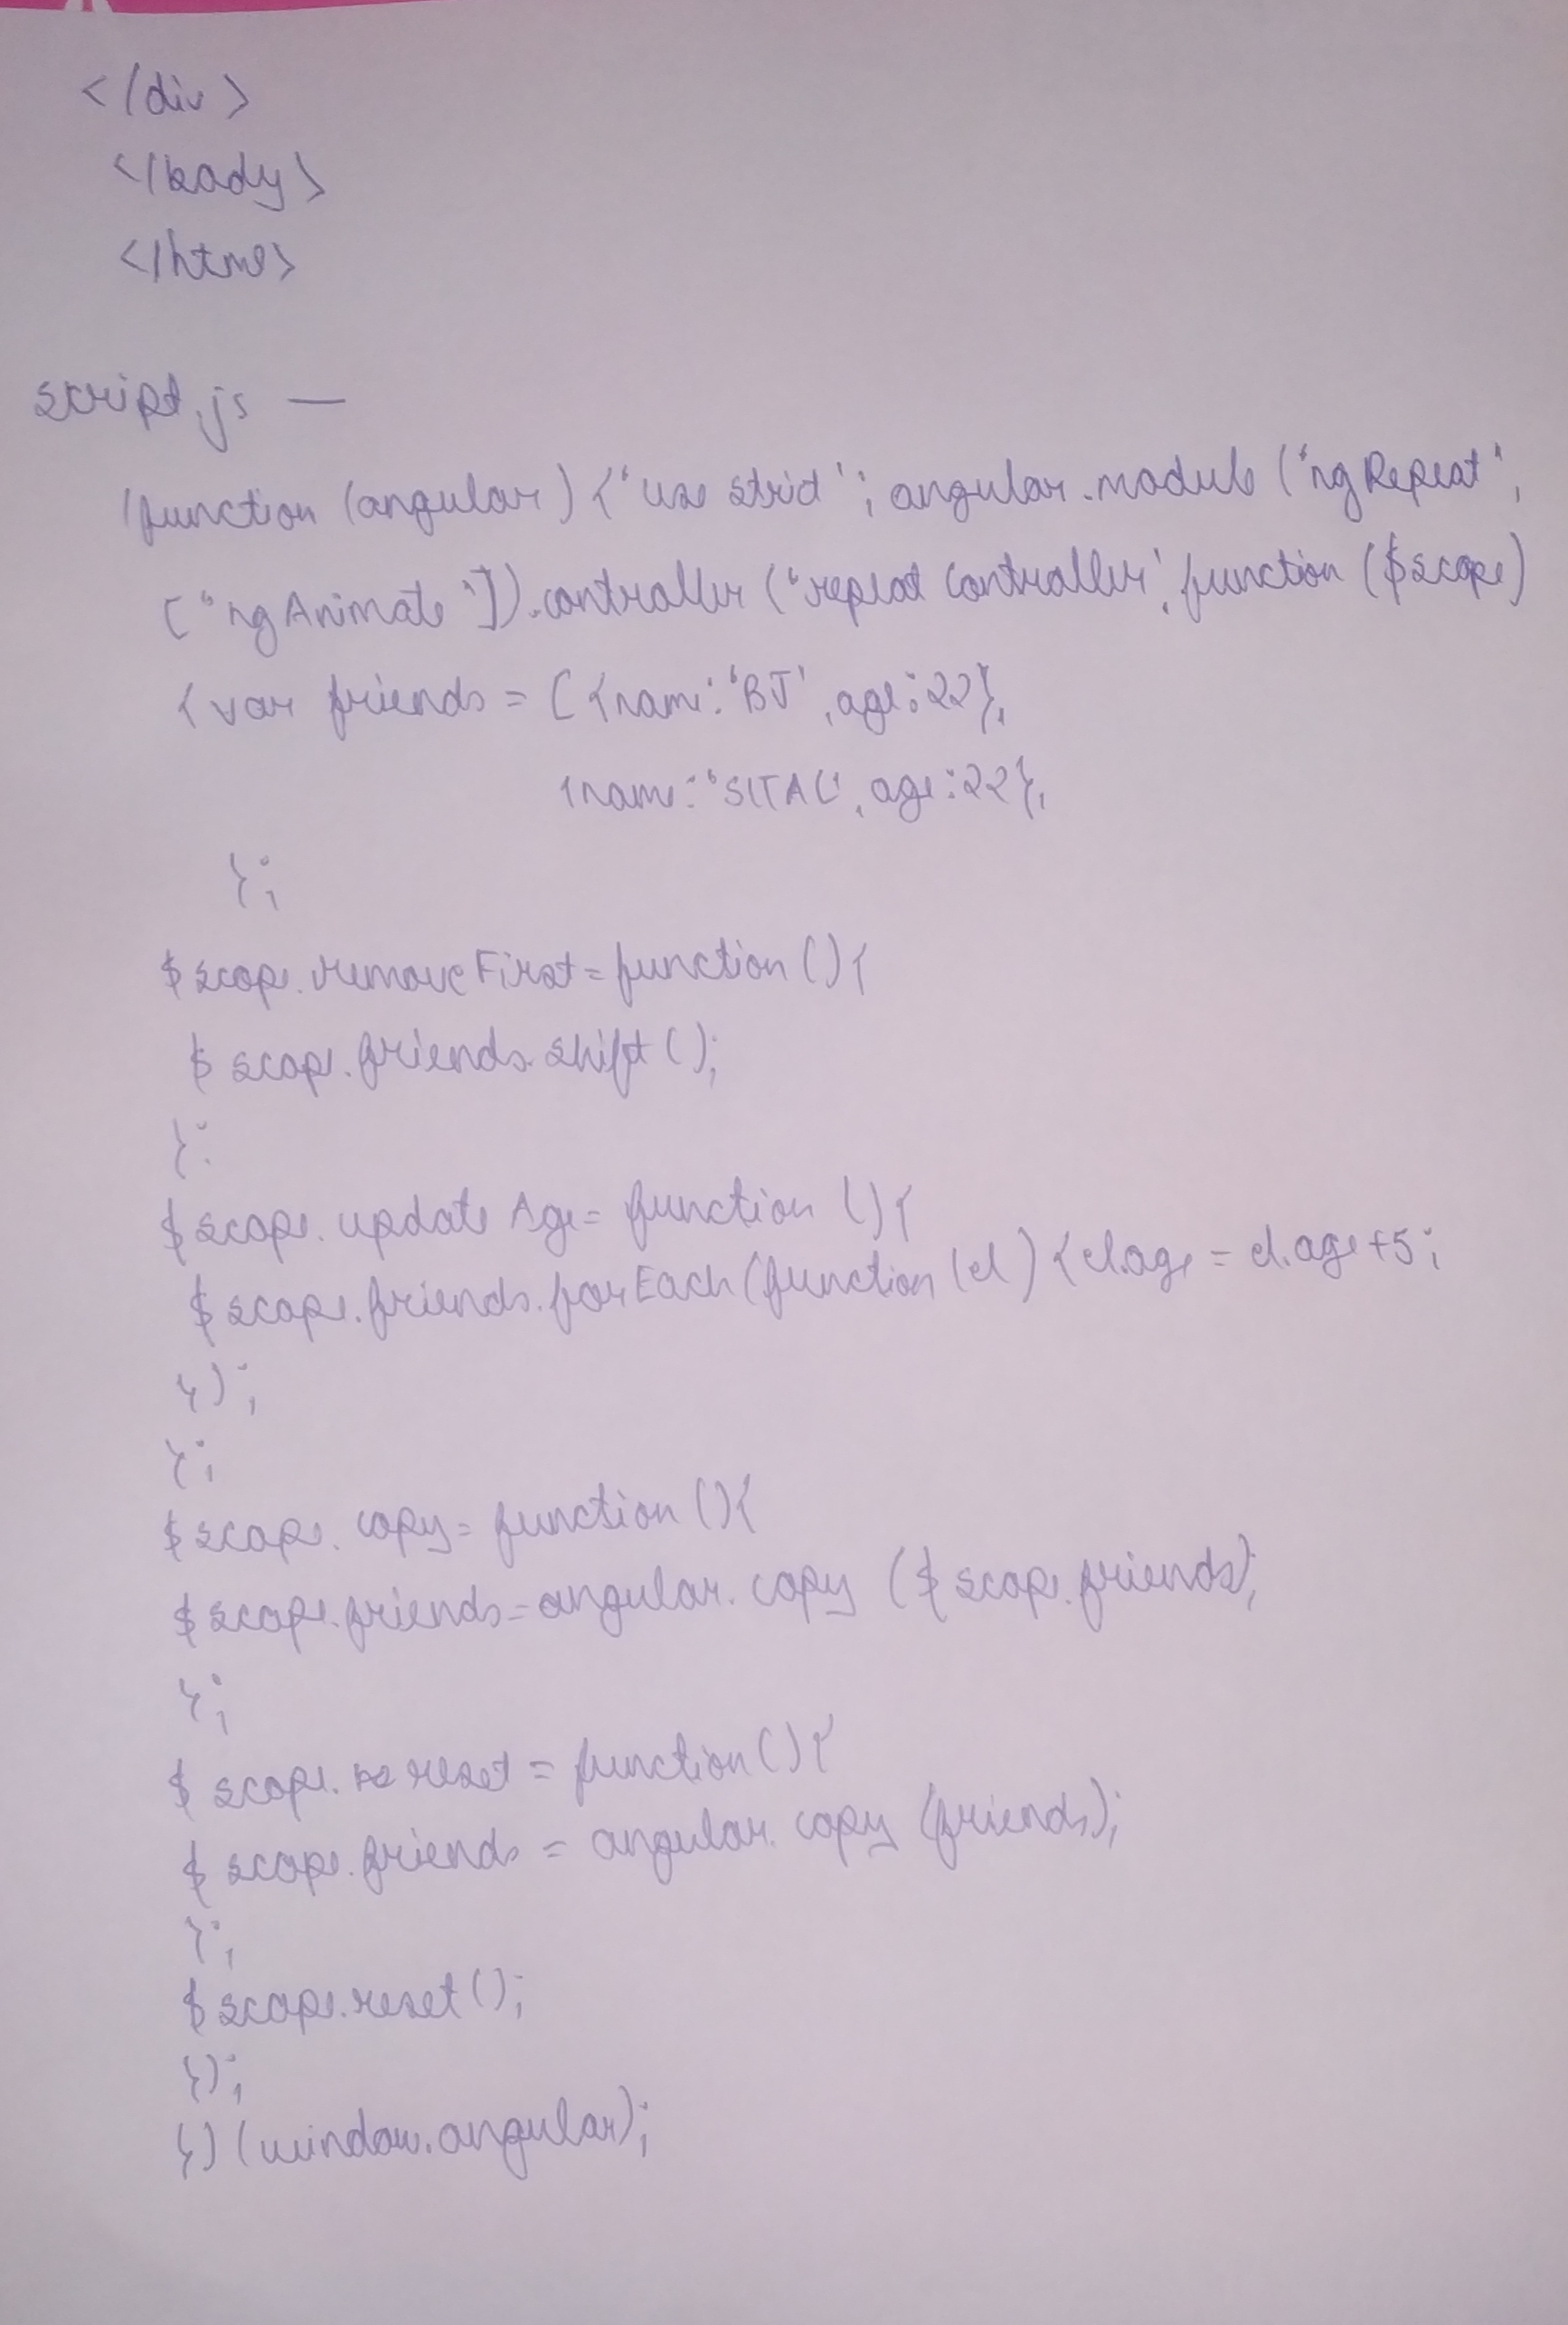 </div>
</body>
</html>
script.js —
(function (angular) {'use strict'; angular.module ('ngRepeat',
['ngAnimate']).controller ('repeat Controller', function ($scope)
{ var friends = [ {name: 'BJ', age: 22},
{name: 'SITAL', age: 22},
};
$scope.removeFirst = function () {
$scope.friends.shift ();
};
$scope.update Age = function () {
$scope.friends.forEach (function (el) { el.age = el.age +5;
});
};
$scope.copy = function () {
$scope.friends = angular.copy ($scope.friends);
};
$scope.reset = function () {
$scope.friends = angular.copy (friends);
};
$scope.reset ();
});
}) (window.angular);